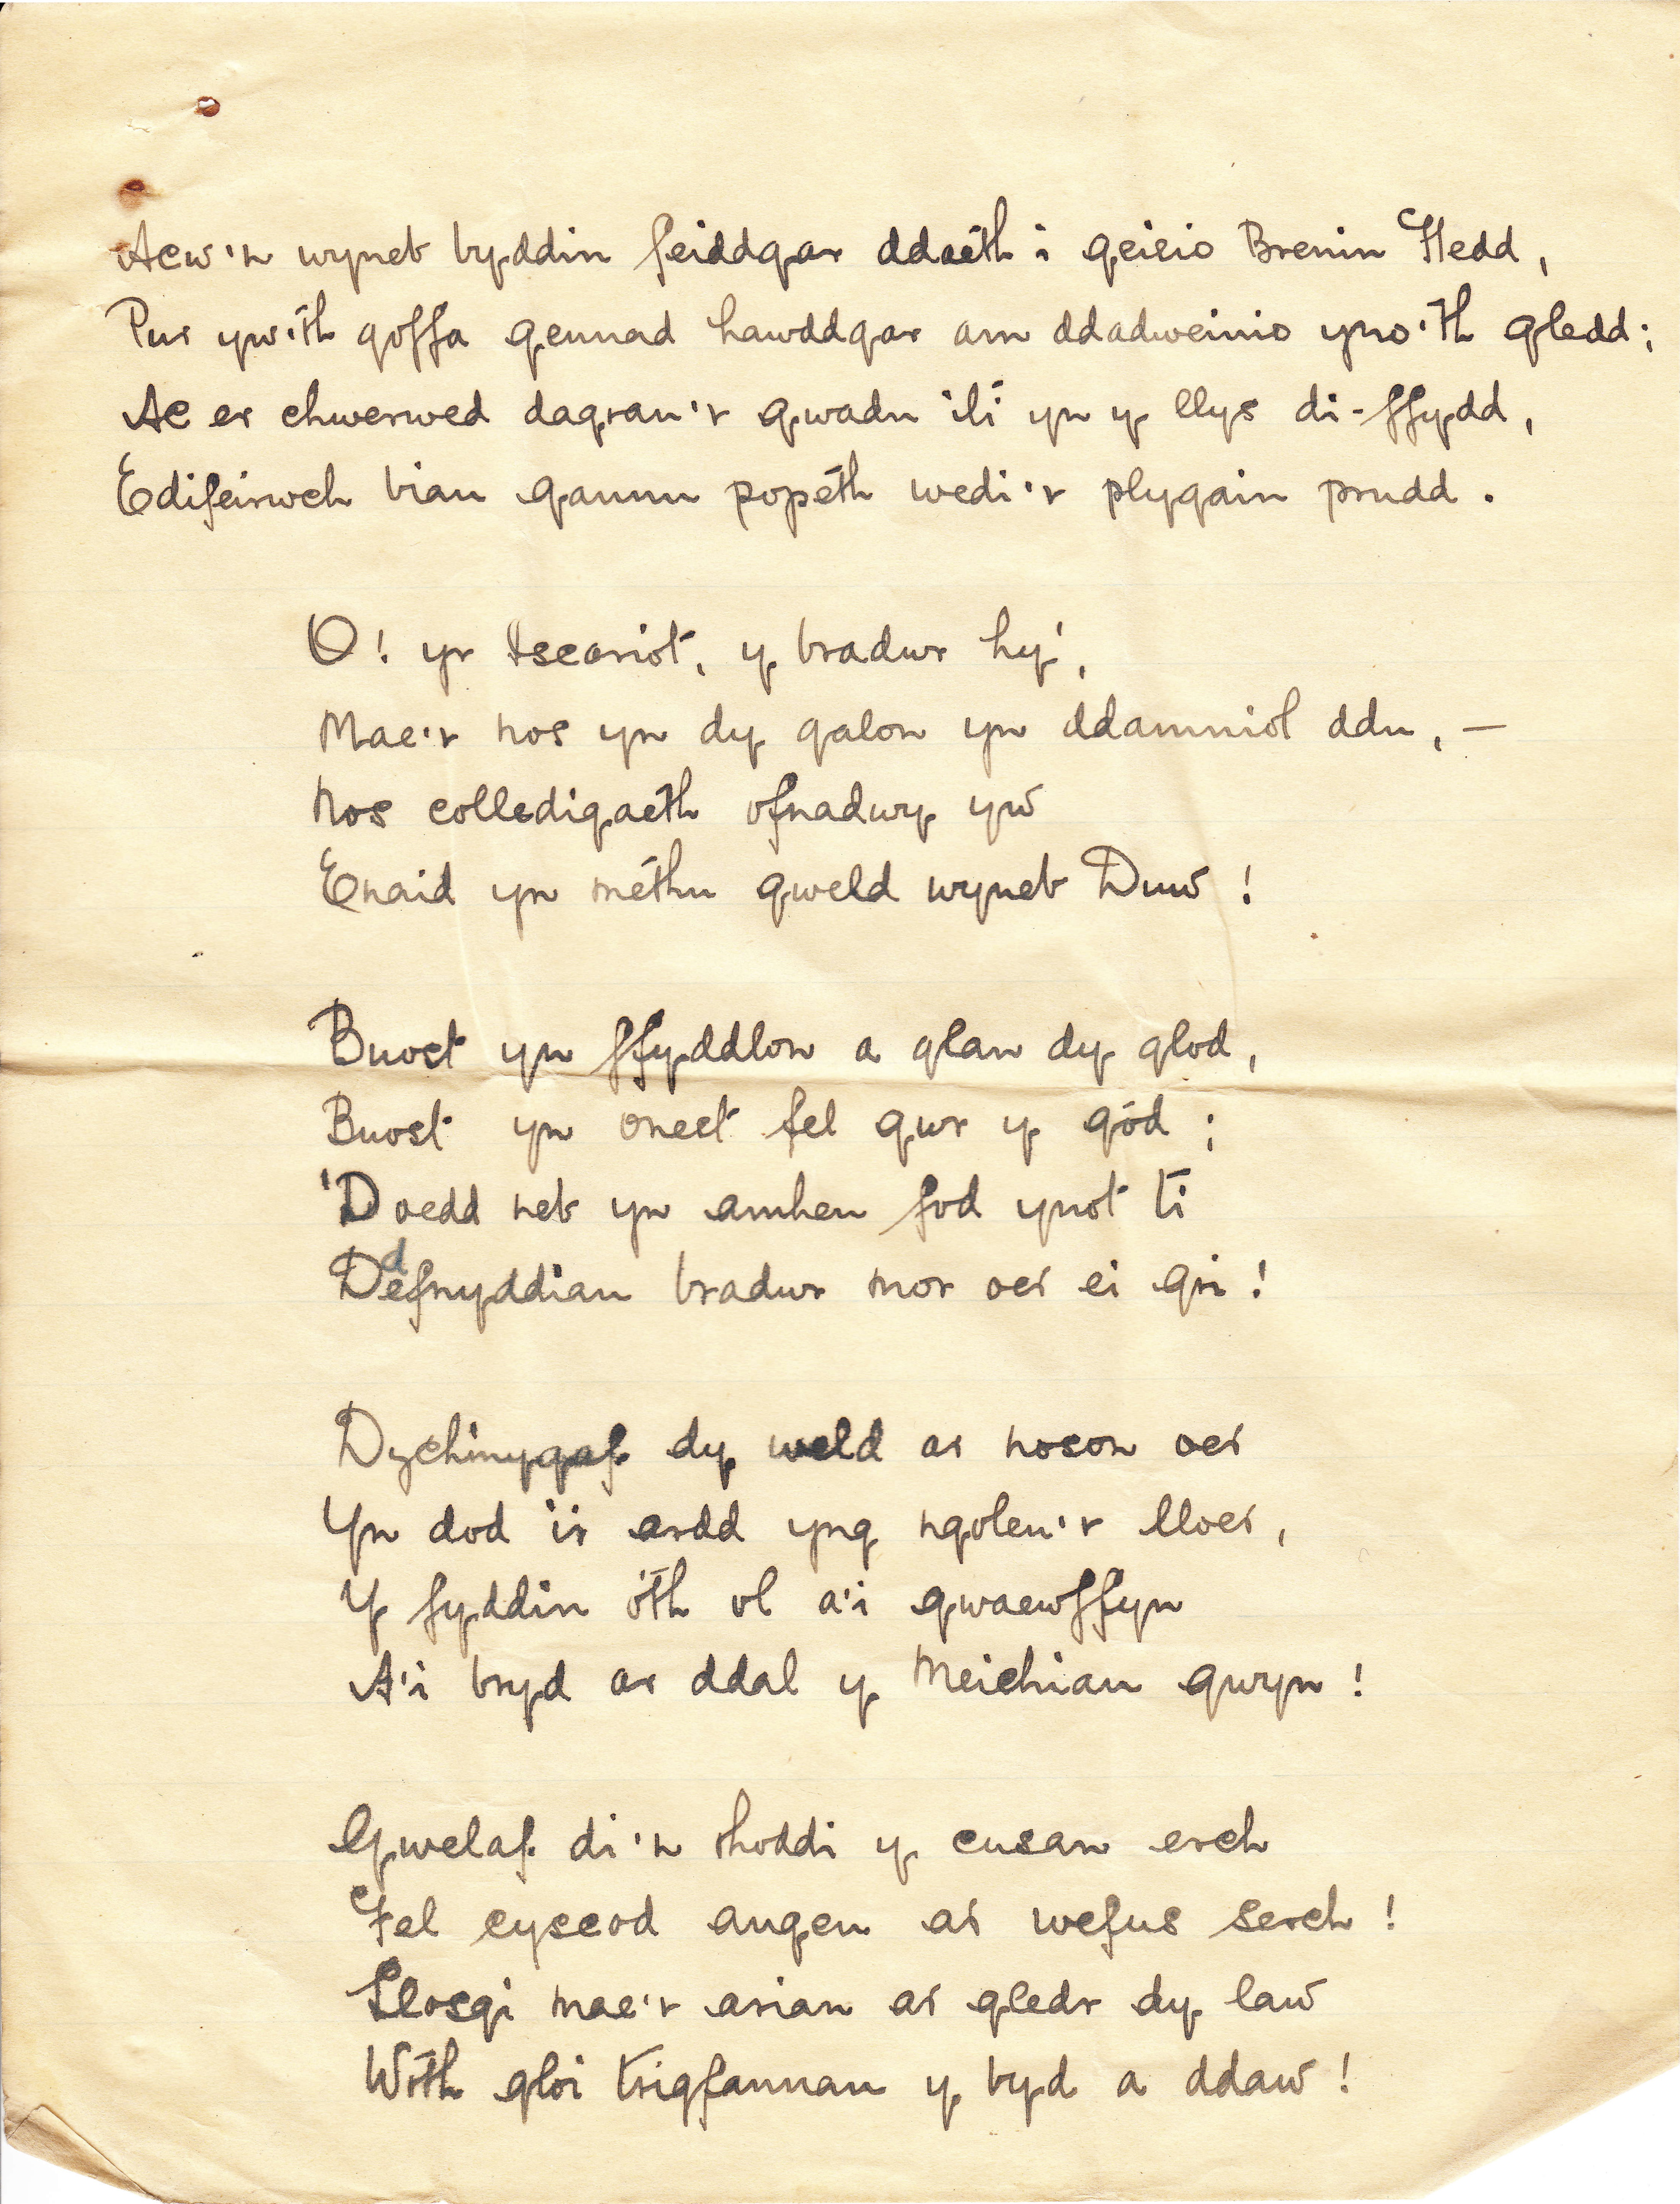 Acw'n wyneb byddin feiddgar ddaeth i geisio Brenin Hedd,
Pur yw'th goffa gennad hawddgar am ddadweinio yno'th gledd;
Ac er chwerwed dagrau'r gwadu 'li yn y llys di-ffydd,
Edifeirwch biau gannu popeth wedi'r plygain prudd.

O! yr Iscariot, y bradwr hy',
Mae'r nos yn dy galon yn ddamniol ddu, —
Nos colledigaeth ofnadwy yw
Enaid yn methu gweld wyneb Duw!

Buost yn ffyddlon a glan dy glod,
Buost yn onest fel gwr y gôd;
'Doedd neb yn amheu fod ynot ti
Ddefnyddiau bradwr mor oer ei gri!

Dychmygaf dy weld ar noson oer
Yn dod i'r ardd yng ngoleu'r lloer,
Y fyddin o'th ol a'i gwaewffyn
A'i bryd ar ddal y Meichiau gwyn!

Gwelaf di'n rhoddi y cusan erch
Fel cysgod angeu ar wefus serch!
Llosgi mae'r arian ar gledr dy law
Wrth gloi trigfannau y byd a ddaw!